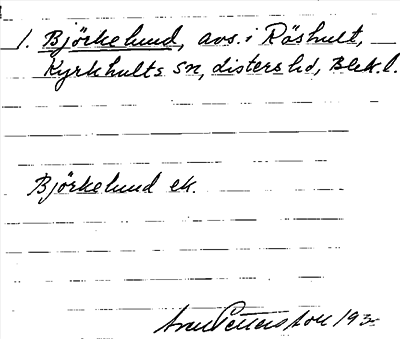 1. Björkelund, avs. i Röshult,
Kyrkhults sn, Listers hd, Blek. l.
Björkelund ek.
Sven Pettersson 193